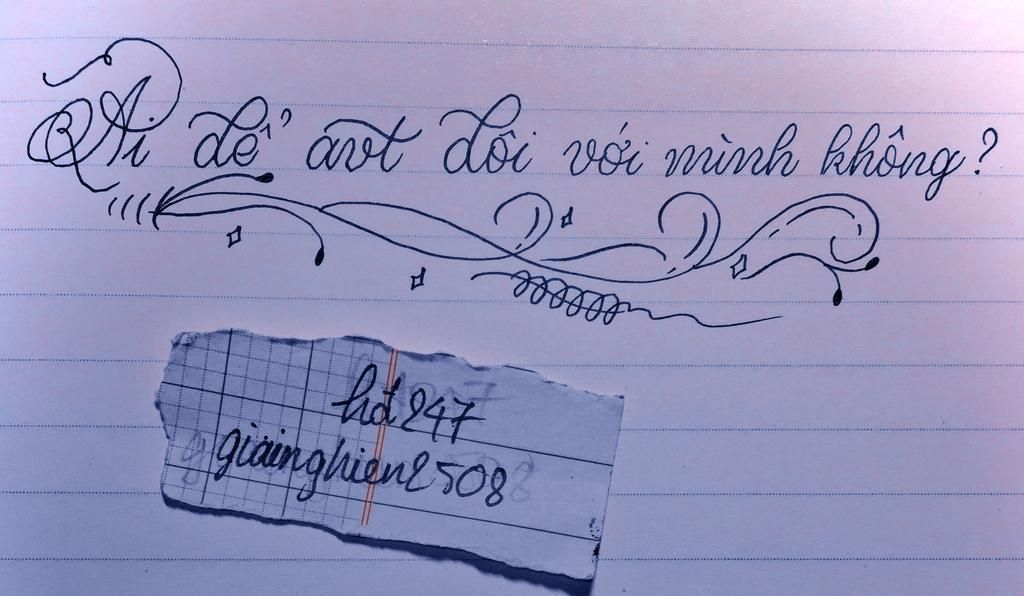 Ai để avt đôi với mình không?
hđ247
giainghien2508